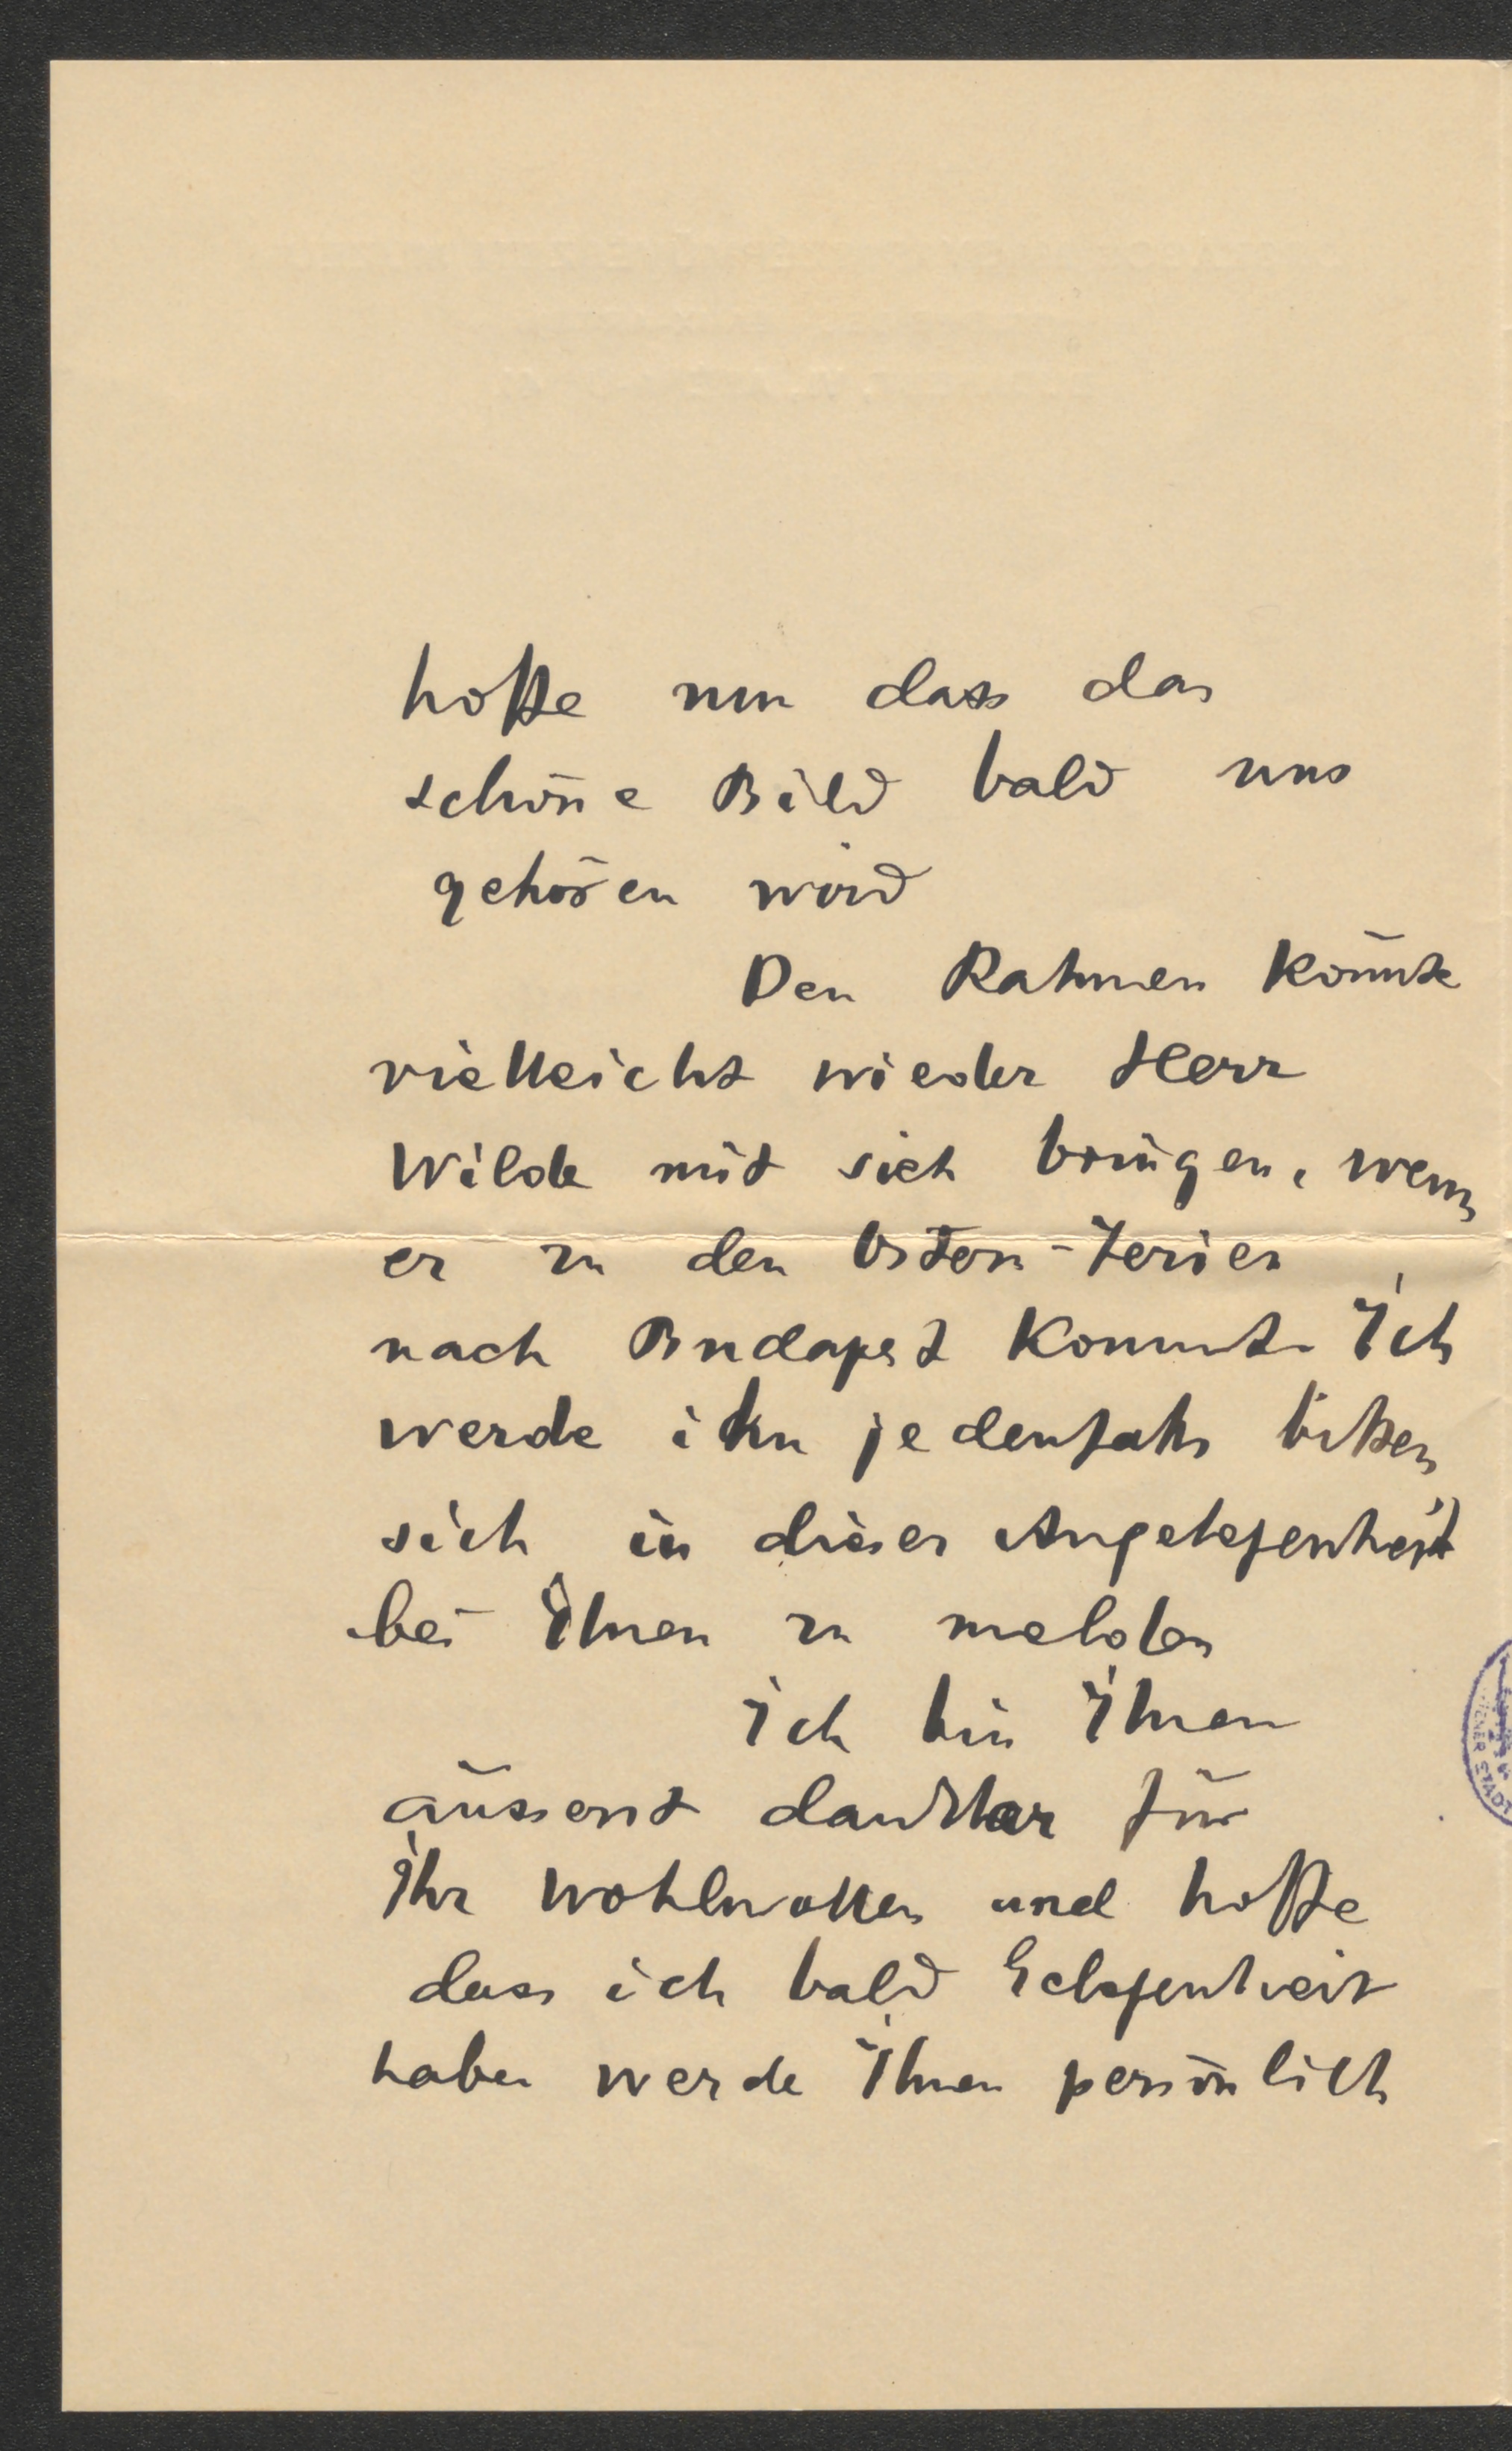 hoffe nun dass das
schöne Bild bald uns
gehören wird
Den Rahmen könnte
vielleicht wieder Herr
Wilde mit sich bringen, wenn
er zu den Ostern-Ferien
nach Budapest kommt. Ich
werde ihn jedenfalls bitten
sich in dieser Angelegenheit
bei Ihnen zu melden
Ich bin Ihnen
äusserst dankbar für
Ihr Wohlwollen und hoffe
dass ich bald Gelegenheit
haben werde Ihnen persönlich
WIENER STADT